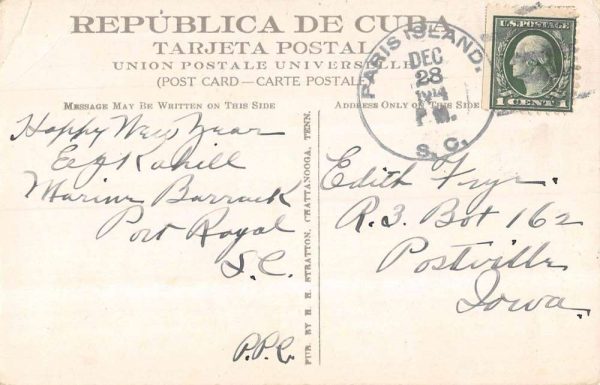 REPÚBLICA DE CUBA
TARJETA POSTAL
UNION POSTALE UNIVERSELLE
(POST CARD—CARTE POSTALE)
MESSAGE MAY BE WRITTEN ON THIS SIDE
ADDRESS ONLY ON THIS SIDE
PARIS ISLAND.
DEC
28
1914
P M.
S. C.
U.S. POSTAGE
1 CENT 1
Happy New Year
Marine Barrack
Port Royal
S.C.
P.P.C.
PUB. BY H. H. STRATTON, CHATTANOOGA, TENN.
Edith Frye.
R.3. Box 162
Postville
Iowa.